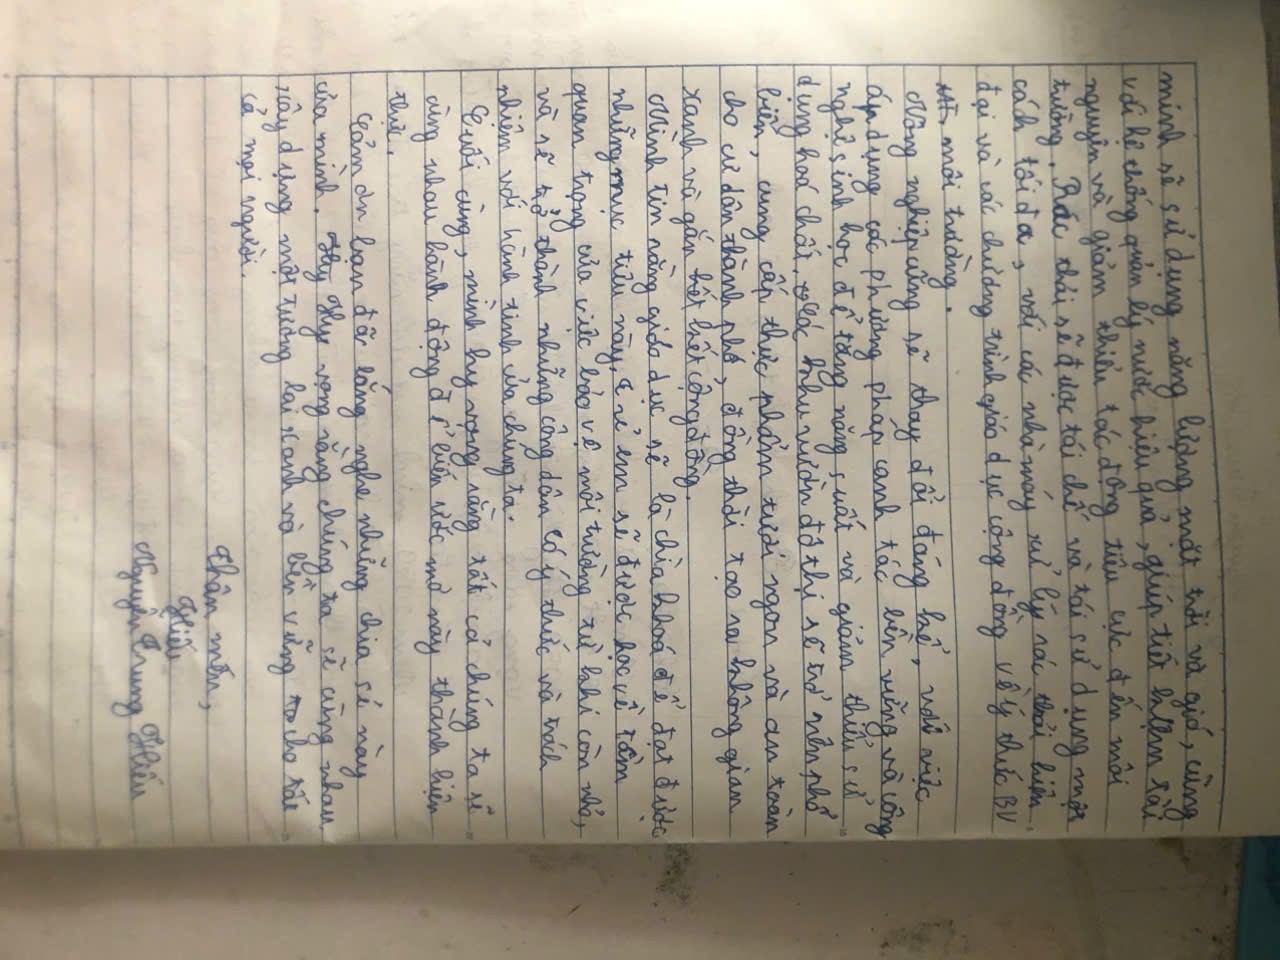 mình sẽ sử dụng năng lượng mặt trời và gió, cùng
với hệ thống quản lý nước hiệu quả, giúp tiết kiệm tài
nguyên và giảm thiểu tác động tiêu cực đến môi
trường. Rác thải sẽ được tái chế và tái sử dụng một
cách tối đa, với các nhà máy xử lý rác thải hiện
đại và các chương trình giáo dục cộng đồng về ý thức BV
môi trường.
Nông nghiệp cũng sẽ thay đổi đáng kể, với việc
áp dụng các phương pháp canh tác bền vững và công
nghệ sinh học để tăng năng suất và giảm thiểu sử
dụng hoá chất. Các khu vườn đô thị sẽ trở nên phổ
biến, cung cấp thực phẩm tươi ngon và an toàn
cho cư dân thành phố, đồng thời tạo ra không gian
xanh và gắn kết kết cộng đồng.
Mình tin rằng giáo dục sẽ là chìa khoá để đạt được
những mục tiêu này, trẻ em sẽ được học về tầm
quan trọng của việc bảo vệ môi trường từ khi còn nhỏ,
và sẽ trở thành những công dân có ý thức và trách
nhiệm với hành tinh của chúng ta.
Cuối cùng, mình hy vọng rằng tất cả chúng ta sẽ
cùng nhau hành động để biến ước mơ này thành hiện
thực.
Cảm ơn bạn đã lắng nghe những chia sẻ này
của mình. Hy Hy vọng rằng chúng ta sẽ cùng nhau
xây dựng một tương lai xanh và bền vững cho tất
cả mọi người.
Thân mến,
Hiếu
Nguyễn Trung Hiếu